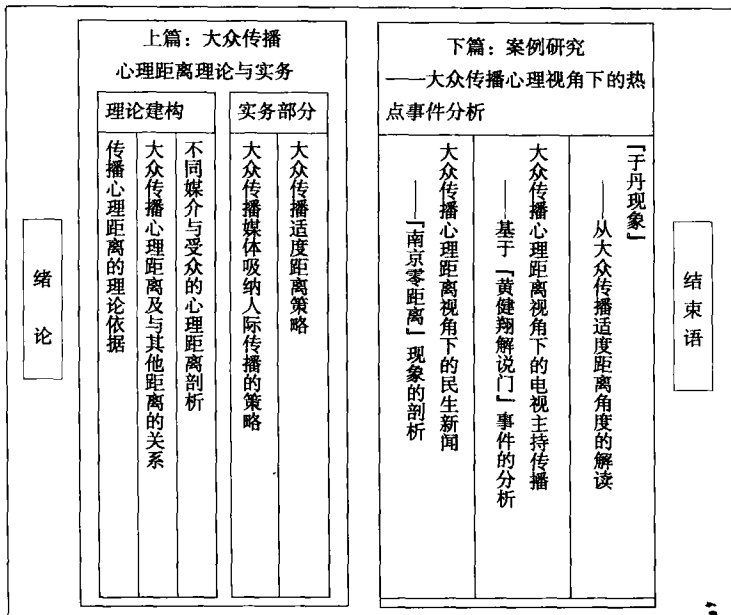 绪论
上篇：大众传播
心理距离理论与实务
理论建构
传播心理距离的理论依据
大众传播心理距离及与其他距离的关系
不同媒介与受众的心理距离剖析
实务部分
大众传播媒体吸纳人际传播的策略
大众传播适度距离策略
下篇：案例研究
——大众传播心理视角下的热
点事件分析
大众传播心理距离视角下的民生新闻
——『南京零距离』现象的剖析
大众传播心理距离视角下的电视主持传播
——基于『黄健翔解说门』事件的分析
『于丹现象』
——从大众传播适度距离角度的解读
结束语